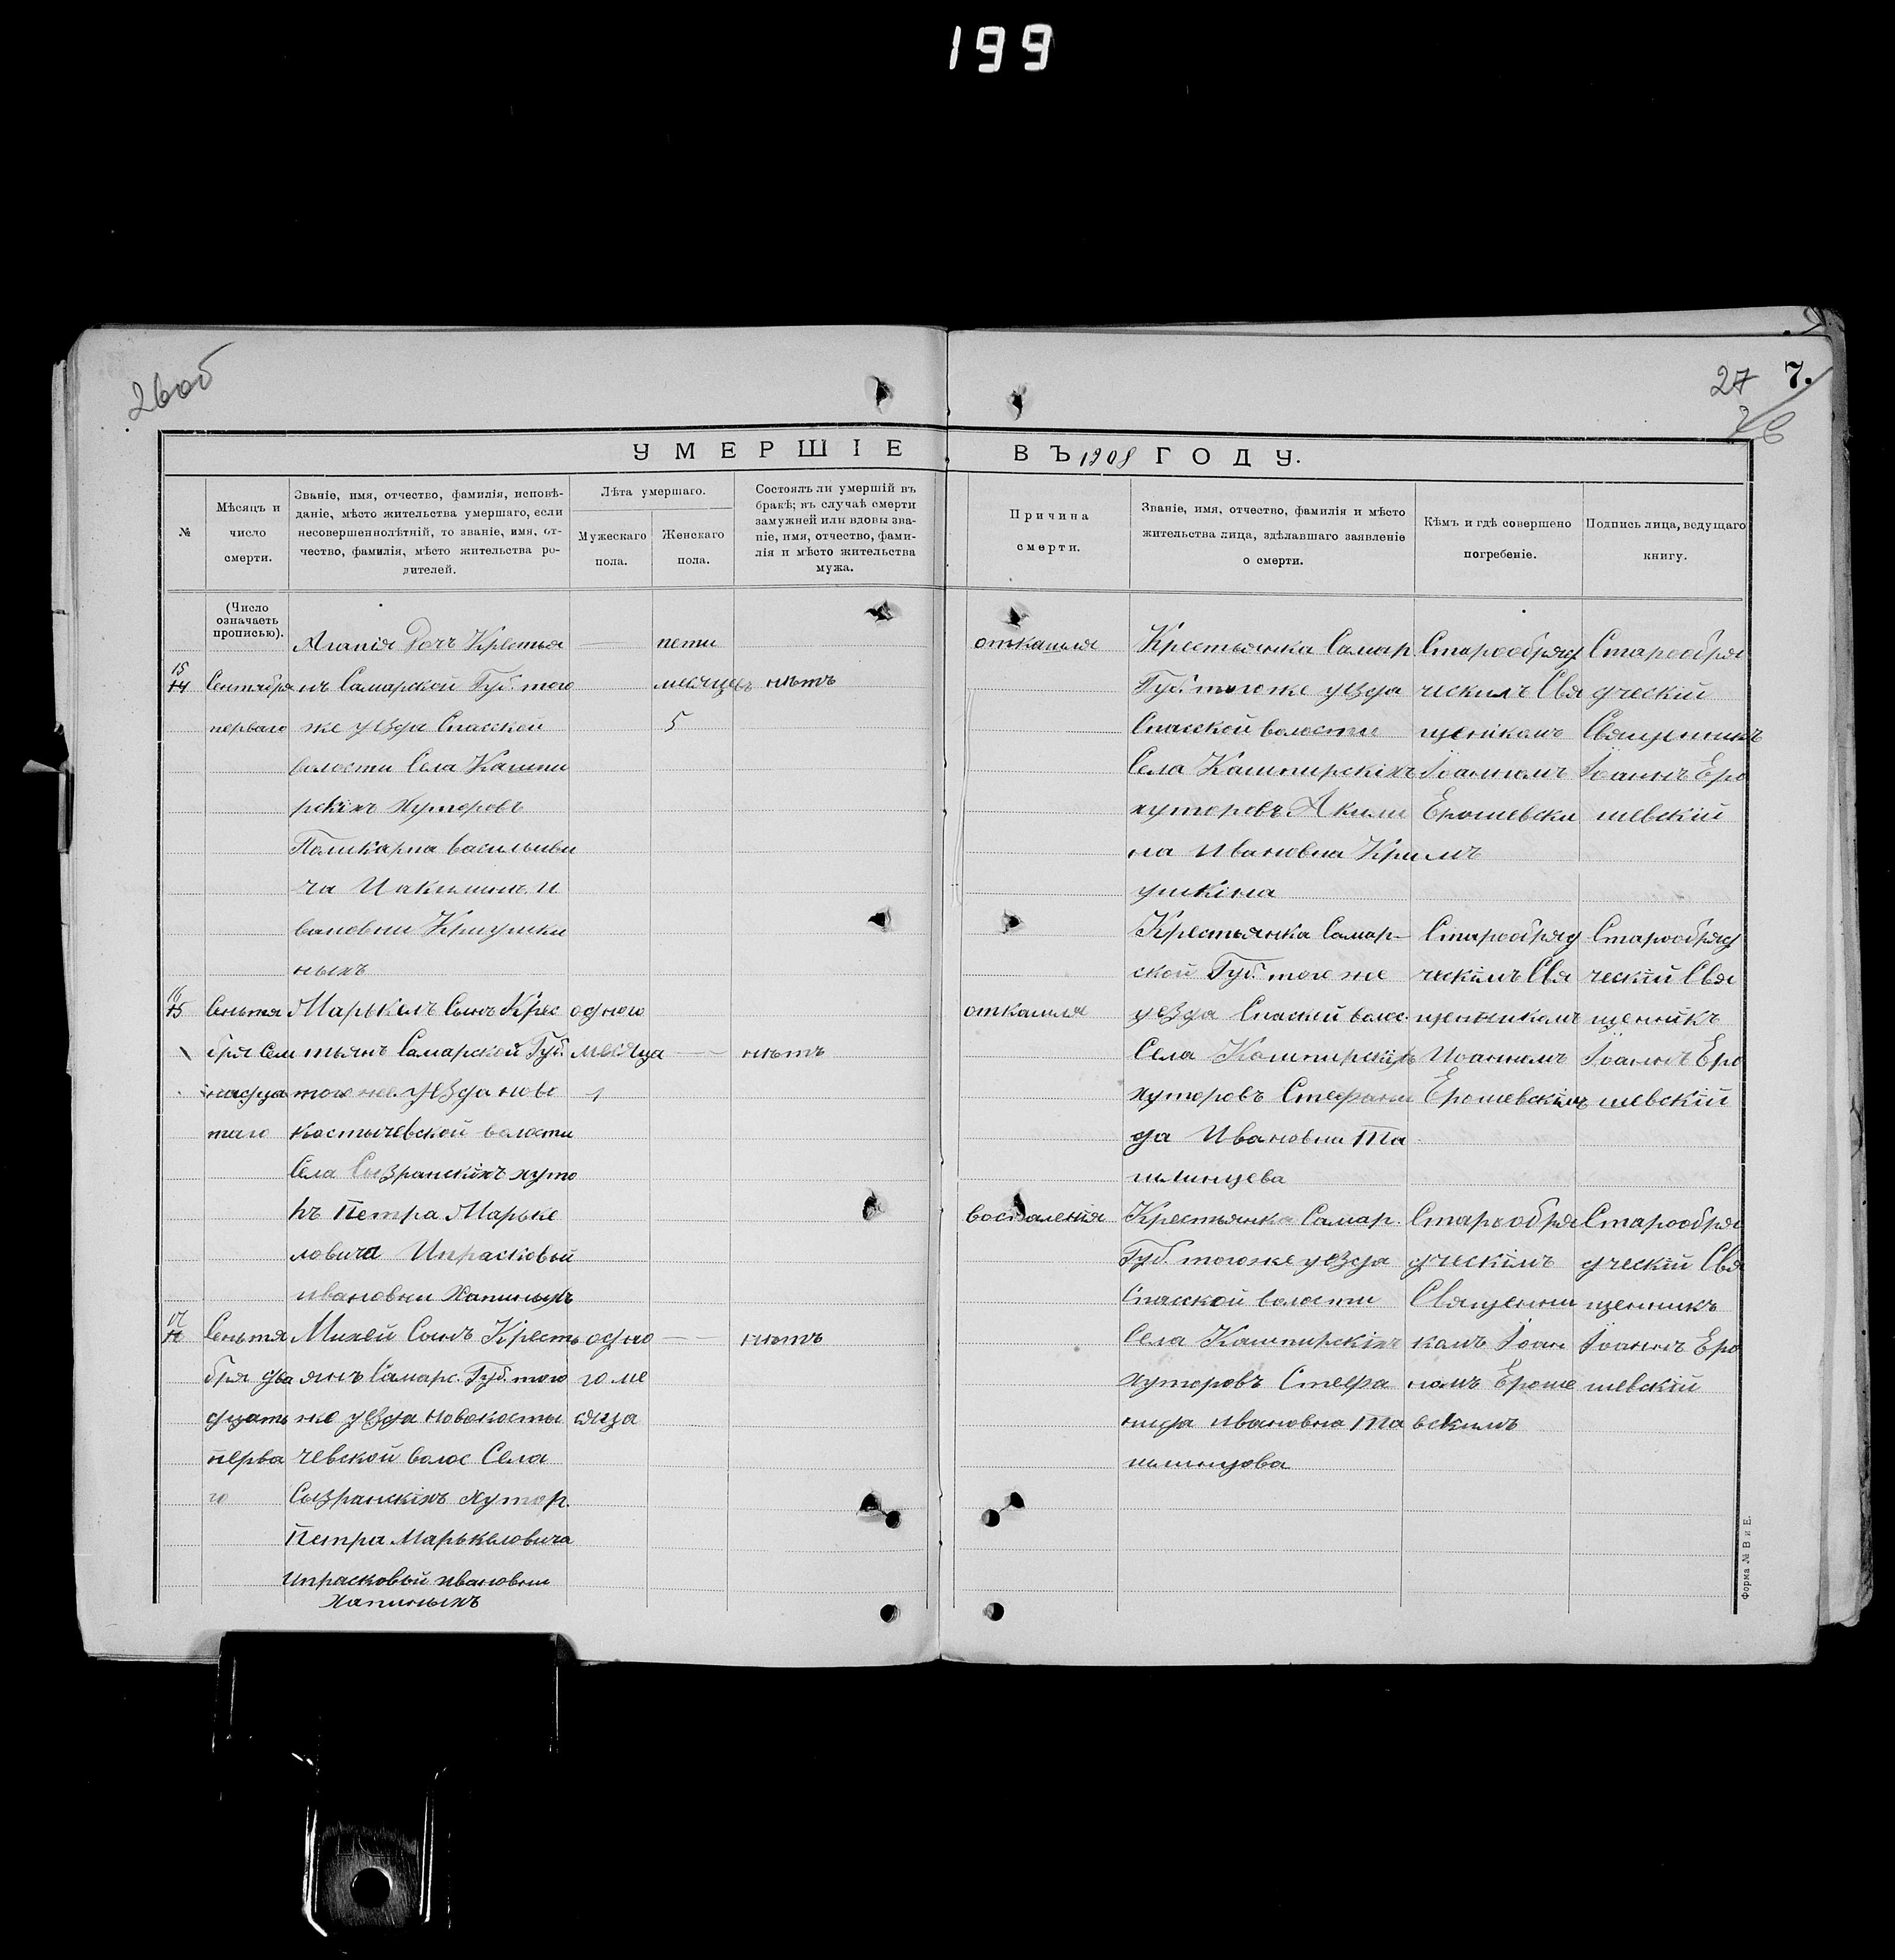 199
26об
27 7.
26
УМЕРШІЕ ВЪ 1908 ГОДУ.
№
Мѣсяцъ и число смерти.
Званіе, имя, отчество, фамилія, исповѣ-
даніе, мѣсто жительства умершаго, если
несовершеннолѣтній, то званіе, имя, от-
чество, фамилія, мѣсто жительства ро-
дителей.
Лѣта умершаго.
Мужескаго пола.
Женскаго пола.
Состоялъ ли умершій въ
бракѣ; въ случаѣ смерти
замужней или вдовы зва-
ніе, имя, отчество, фами-
лія и мѣсто жительства
мужа.
Причина смерти.
Званіе, имя, отчество, фамилія и мѣсто
жительства лица, здѣлавшаго заявленіе
о смерти.
Кѣмъ и гдѣ совершено
погребеніе.
Подпись лица, ведущаго
книгу.
(Число
означаетъ
прописью).
15
14
Сентября
перваго
Агапія Дочъ Крестья
нъ Самарской Губ. того
же уезда Спасской
волости Села Кашпи
рскіхъ Хуторовъ
Поликарпа васильиви
ча Иакилины И
вановны Кригушки
ныхъ
пети
месяцевъ
5
нѣтъ
откашля
Крестьянка Самар
Губ. того же уезда
Спасской волости
Села Кашпирскіхъ
хуторовъ Акили
на Ивановна Кри
ушкіна
Старообряд
ческимъ Свя
щенікомъ
Іоанномъ
Ерошевски
мъ
Старообря
дческій
Священникъ
Іоаннъ Еро
шевскій
16
15
Сеньтя
бря Сем
надца
таго
Марькелъ Сынъ Крес
тьянъ Самарской Губ.
того же уезда ново
костычевской волости
Села Сызранскіхъ хуто
въ Петра Марьке
ловича Ипрасковьи
ивановны Хапиныхъ
одного
месяца
1
нѣтъ
откашля
Крестьянка Самар-
ской Губ. того же
уезда Спаской волос.
Села Кашпирскіхъ
хуторовъ Стефани
да Ивановна Та
шлинцева
Старообряд
ческимъ Свя
щенникомъ
Иоанномъ
Ерошевскімъ
Старообряд
ческій Свя
щенникъ
Іоаннъ Еро
шевскій
17
16
Сеньтя
бря два
дцать
перва
го
Михей Сынъ Кресть
янъ Самарс. Губ. того
же уезда новокосты
чевской волос Села
Сызранскіхъ Хутор
Петра Марькеловича
Ипрасковьи ивановны
Хапиныхъ
одно
го ме
сяца
нѣтъ
воспаленія
Крестьянка Самар.
Губ. того же уезда
Спасской волости
Села Кашпирскіхъ
Хуторовъ Стефа
нида ивановна Та
шлинцова
Старообря
дческімъ
Священни
комъ Іоан
номъ Ероше
вскимъ
Старообря
дческій Свя
щенникъ
Іоаннъ Еро
шевскій
Форма № В и Е.